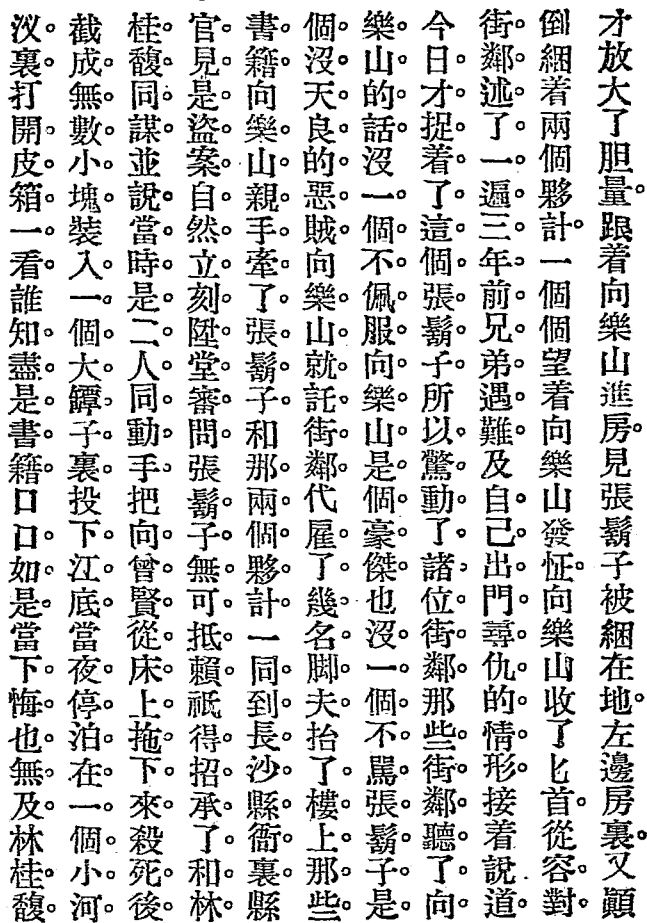 才放大了胆量。跟着向樂山進房。見張鬍子被綑在地。左邊房裏。又顛
倒綑着兩個夥計。一個個望着向樂山發怔。向樂山收了匕首。從容對
街鄰述了一遍三年前兄弟遇難及自己出門尋仇的情形接着說道
今日才捉着了這個張鬍子所以驚動了諸位街鄰那些街鄰聽了向
樂山的話沒一個不佩服向樂山是個豪傑也沒一個不罵張鬍子是
個沒天良的惡賊向樂山就託街鄰代雇了幾名脚夫抬了樓上那些
書籍向樂山親手牽了張鬍子和那兩個夥計一同到長沙縣衙裏縣
官見是盜案自然立刻陞堂審問張鬍子無可抵賴祇得招承了和林
桂馥同謀並說當時是二人同動手把向曾賢從床上拖下來殺死後
截成無數小塊裝入一個大罈子裏投下江底當夜停泊在一個小河
汊裏打開皮箱一看誰知盡是書籍口口如是當下悔也無及林桂馥